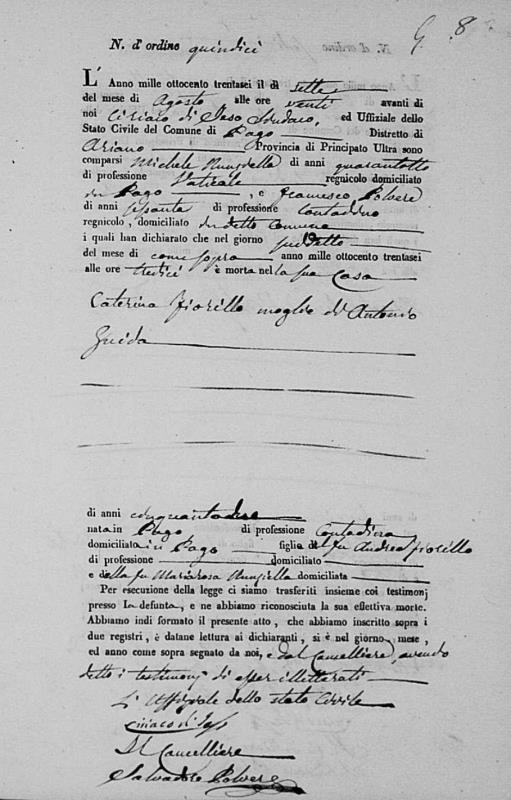 G. 8
N. d'ordine quindici
L' Anno mille ottocento trentasei il dì sette
del mese di Agosto alle ore venti avanti di
noi Ciriaco di Jaso Sindaco, ed Uffiziale dello
Stato Civile del Comune di Pago Distretto di
Ariano Provincia di Principato Ultra sono
comparsi Michele di anni quarantotto
di professione Vaticale regnicolo domiciliato
in Pago, e Francesco Polvere
di anni sessanta di professione Contadino
regnicolo, domiciliato in detto Comune
i quali han dichiarato che nel giorno suddetto
del mese di come sopra anno mille ottocento trentasei
alle ore tredici è morta nella sua Casa
Caterina Fiorillo moglie di Antonio
Guida
di anni cinquantadue
nata in Pago di professione Contadina
domiciliata in Pago figlia del fu Andrea Fiorillo
di professione domiciliato
e della fu Mariarosa domiciliata
Per esecuzione della legge ci siamo trasferiti insieme coi testimonj
presso la defunta, e ne abbiamo riconosciuta la sua effettiva morte.
Abbiamo indi formato il presente atto, che abbiamo inscritto sopra i
due registri, è datane lettura ai dichiaranti, si è nel giorno, mese,
ed anno come sopra segnato da noi, e dal Cancelliere, avendo
detto i testimonj di esser illetterati
L'Uffiziale dello stato Civile
Ciriaco di Jaso
Il Cancelliere
Salvadore Polvere